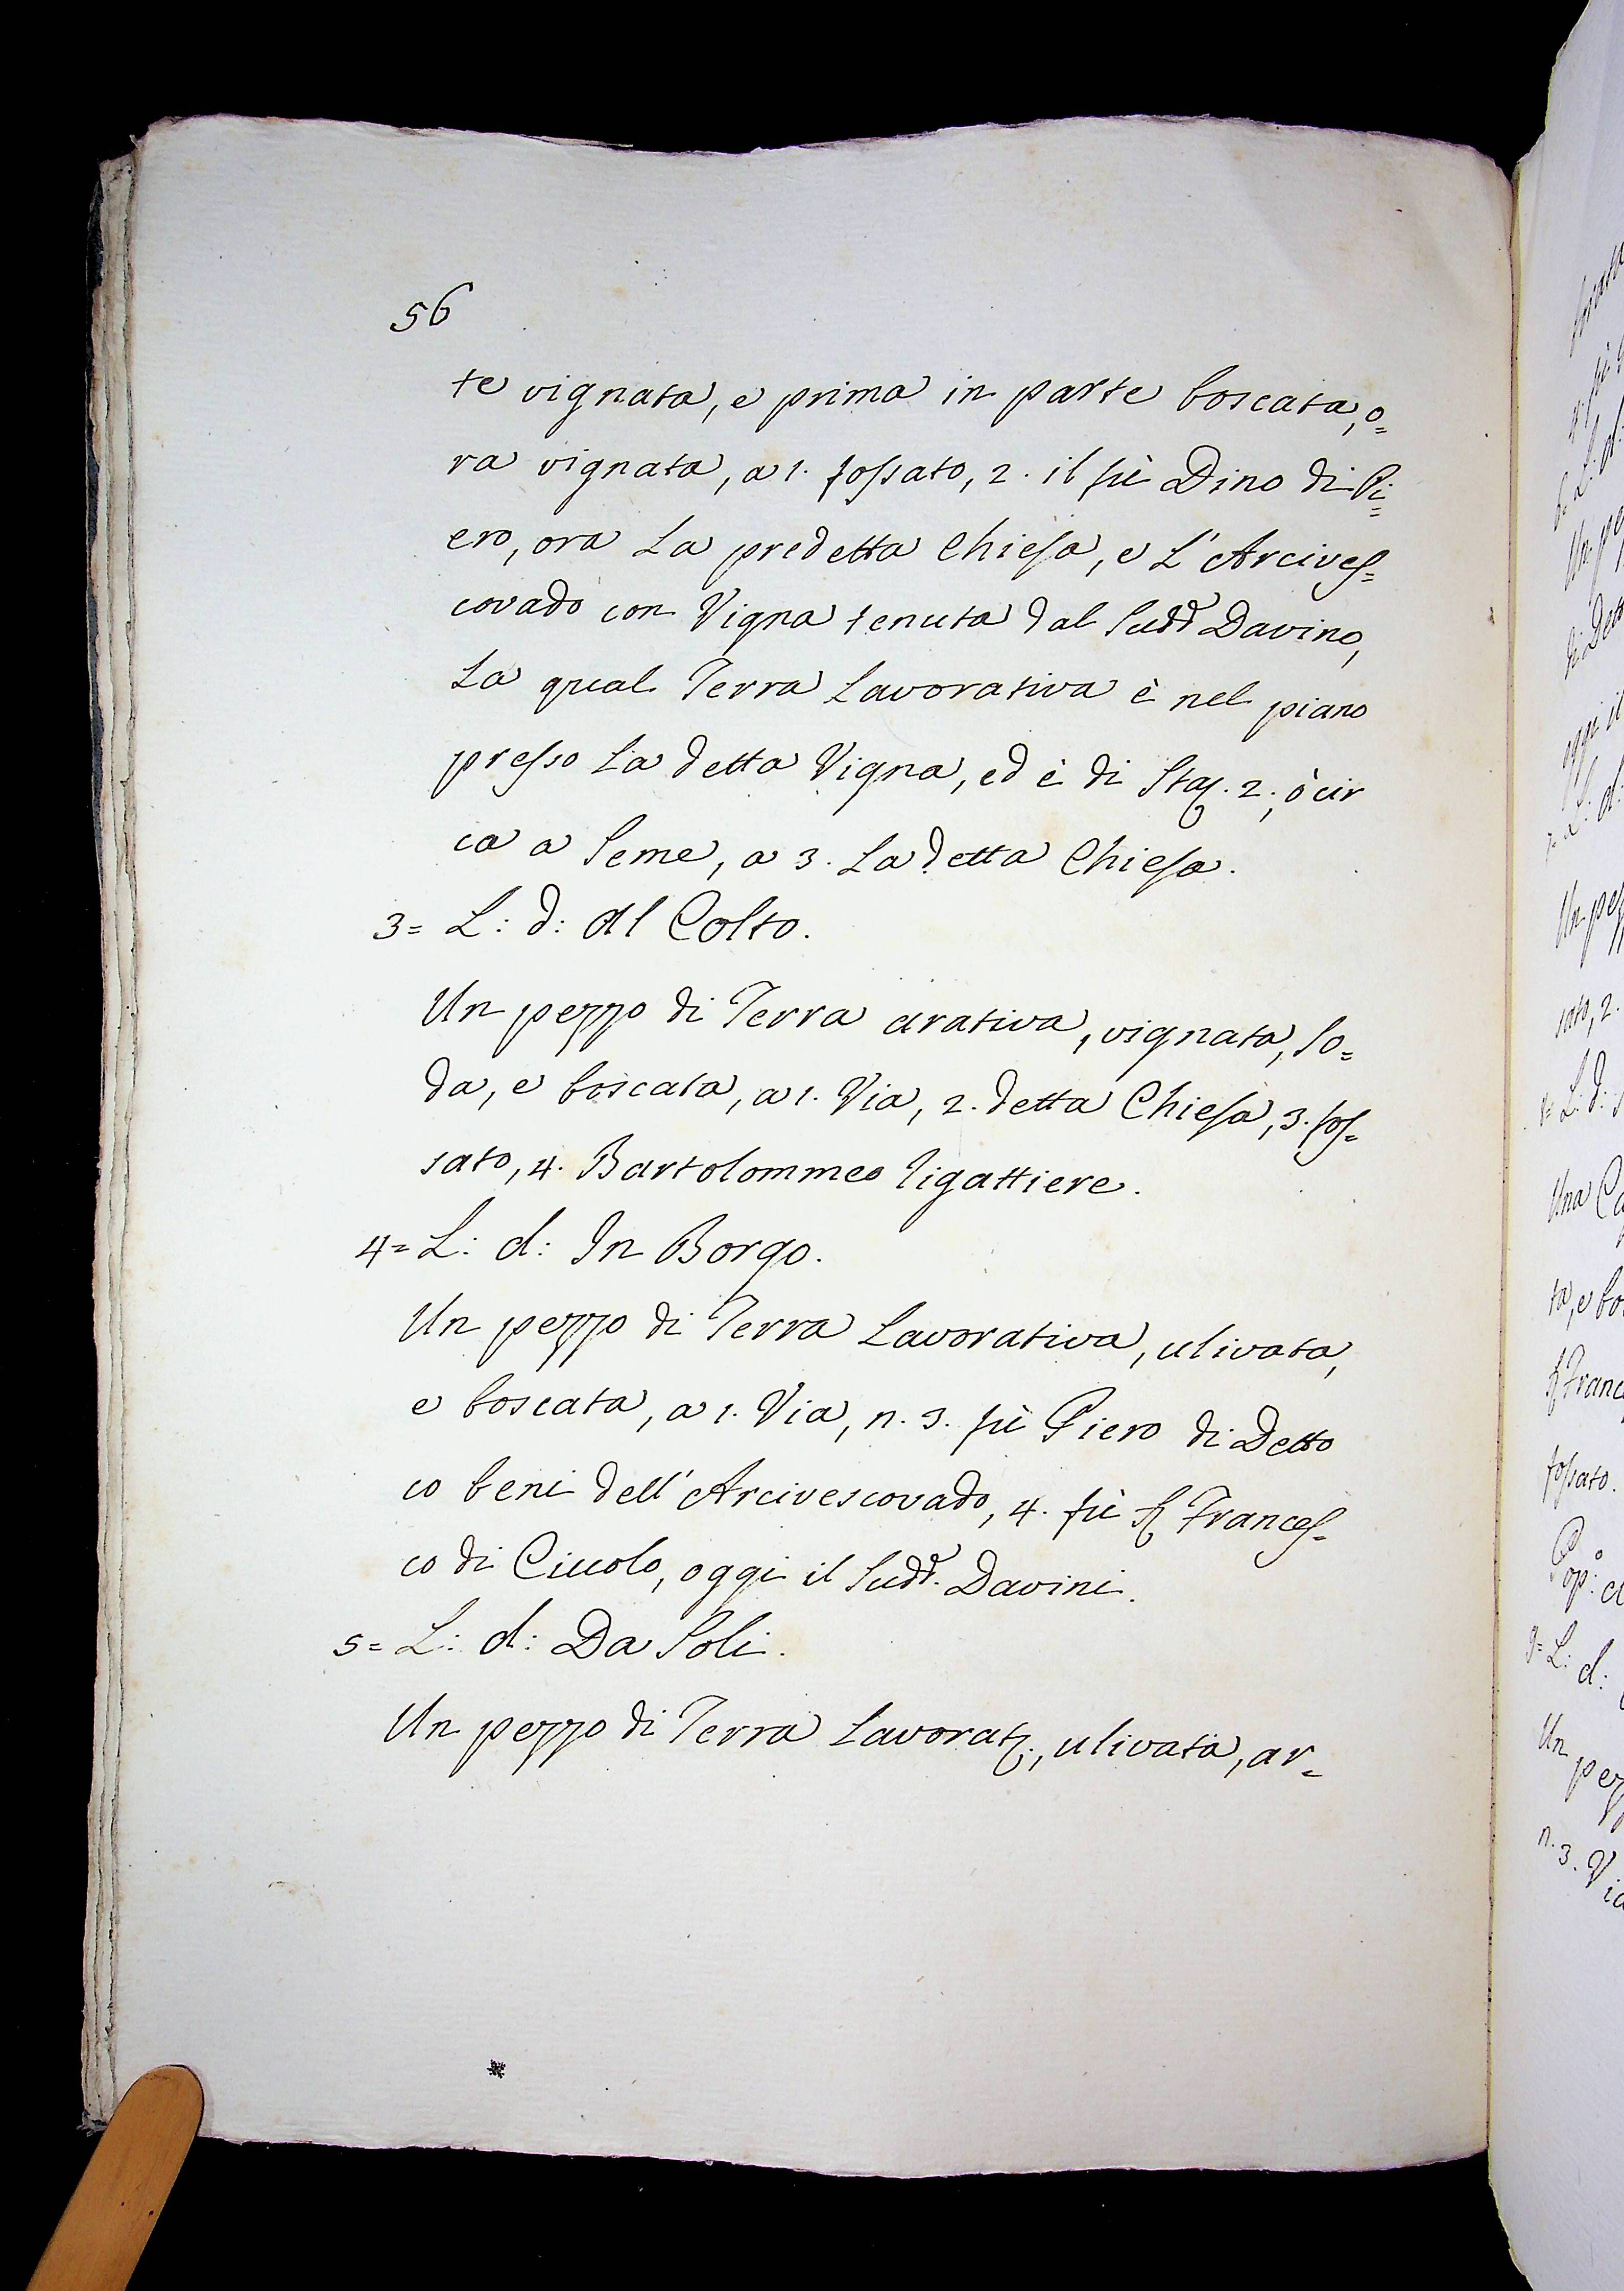 56
te vignata, e prima in parte boscata, o=
ra vignata, a 1. fossato, 2. il fù Dino di Pi=
ero, ora La predetta Chiesa, e L'Arcives=
covado con Vigna tenuta dal Sudd.º Davino,
La qual Terra Lavorativa è nel piano
presso La detta Vigna, ed è di Stag. 2., ò cir
ca a Seme, a 3. La detta Chiesa.
3= L: d: Al Colto.
Un pezzo di Terra arativa, vignata, So=
da, e boscata, a 1. Via, 2. detta Chiesa, 3. fos=
sato, 4. Bartolommeo Rigattiere.
4= L: d: In Borgo.
Un pezzo di Terra Lavorativa, ulivata,
e boscata, a 1. Via, n. 3. fù Piero di Detto
co beni dell'Arcivescovado, 4. fù Frances=
co di Ciuolo, oggi il Sudd.º Davini.
5= L: d: Da Soli.
Un pezzo di Terra Lavorat., ulivata, ar=